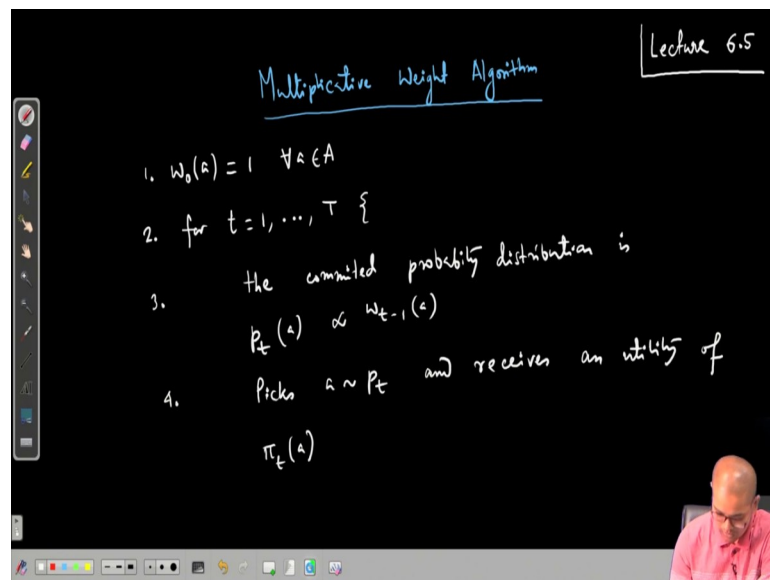 Lecture 6.5
Multiplicative Weight Algorithm
1. w₀(a) = 1 ∀a ∈ A
2. for t = 1, ..., T {
3. the commited probability distribution is
pₜ(a) ∝ wₜ₋₁(a)
4. Picks a ~ pₜ and receives an utility of
πₜ(a)